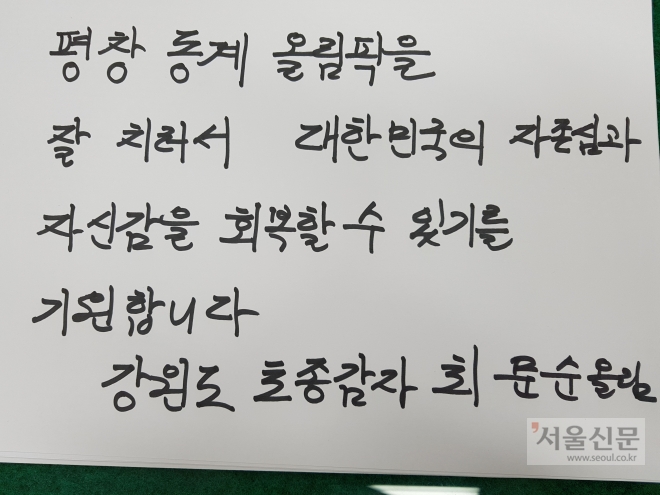 평창 동계 올림픽을
잘 치러서 대한민국의 자존심과
자신감을 회복할 수 있기를
기원합니다
강원도 호종감자 최문순올림
서울신문
www.seoul.co.kr